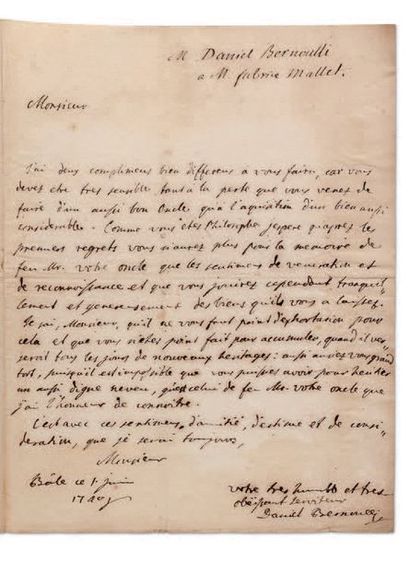 M Daniel Bernoulli
a M. fabrice Mallet.
Monsieur
J'ai deux complimens bien differens a vous faire, car vous
devez etre tres sensible tant à la perte que vous venez de
faire d'un aussi bon Oncle qu'à l'aquisition d'un bien aussi
considerable. Comme vous etes Philosophe j'espere qu'apres les
premiers regrets vous n'aurez plus pour la memoire de
feu Mr. votre oncle que les sentimens de veneration et
de reconnoissance et que vous jouirez cependant tranquil-
lement et genereusement des biens qu'il vous a laissez.
Je sai, Monsieur, qu'il ne vous faut point d'exhortation pour
cela et que vous n'etes point fait pour accumuler, quand il vous
seroit tous les jours de nouveaux heritages: aussi auriez vous grand
tort, puisqu'il est impossible que vous puissiez avoir pour heritier
un aussi digne neveu, que celui de feu Mr. votre oncle que
j'ai l'honneur de connoitre.
C'est avec ces sentimens, d'amitié, d'estime et de consi-
deration, que je serai toujours,
Monsieur
Bâle ce 1. Juin
votre tres humble et tres
obeissant serviteur
Daniel Bernoulli